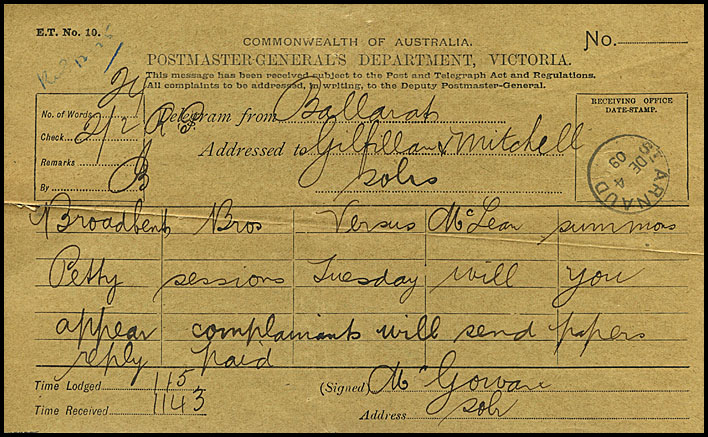 E.T. No. 10.
COMMONWEALTH OF AUSTRALIA.
No.
POSTMASTER-GENERAL'S DEPARTMENT, VICTORIA.
This message has been received subject to the Post and Telegraph Act and Regulations.
All complaints to be addressed, in writing, to the Deputy Postmaster-General.
No. of Words
Check 2/2 RP
Remarks
By B
Telegram from Ballarat
Addressed to Gilfillan & Mitchell
solrs
RECEIVING OFFICE
DATE-STAMP.
ST ARNAUD
DE 4
09
Broadbent Bros Versus McLean summons
Petty sessions Tuesday will you
appear complainants will send papers
reply paid
Time Lodged 115
Time Received 1143
(Signed) McGowan
Address solr